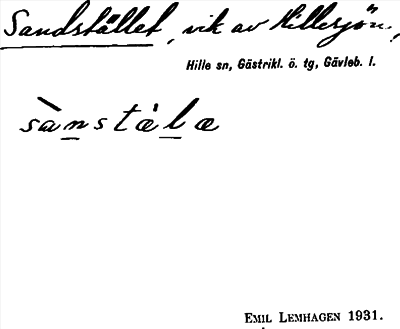 Sandstället, vik av Hillesjön,
Hille sn, Gästrikl. ö. tg, Gävleb. l.
sànstǽlæ
EMIL LEMHAGEN 1931.